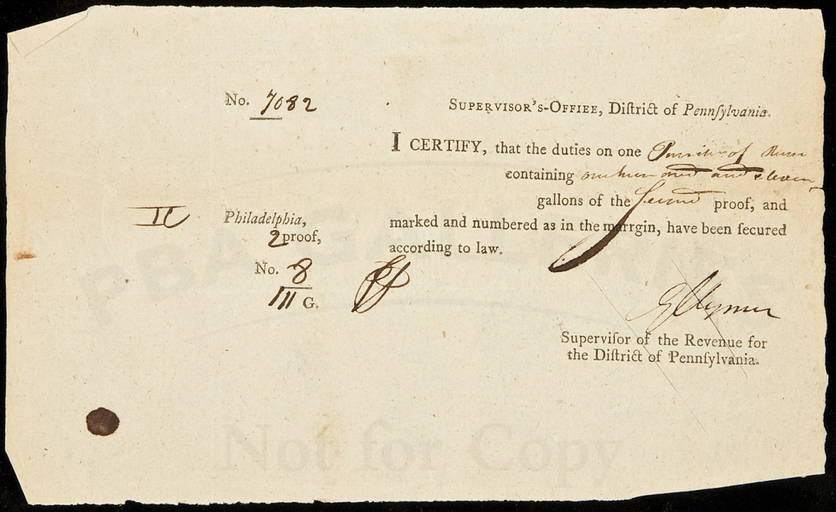 No. 7082
Supervisor's-Offiee, Diſtrict of Pennſylvania.
I CERTIFY, that the duties on one Puncheon of Rum
containing one hundred and eleven
gallons of the Second proof, and
marked and numbered as in the marrgin, have been ſecured
according to law.
Philadelphia,
2 proof,
No. 8
111 G.
G Clymer
Superviſor of the Revenue for
the Diſtrict of Pennſylvania.
PBA GALLERIES
Not for Copy